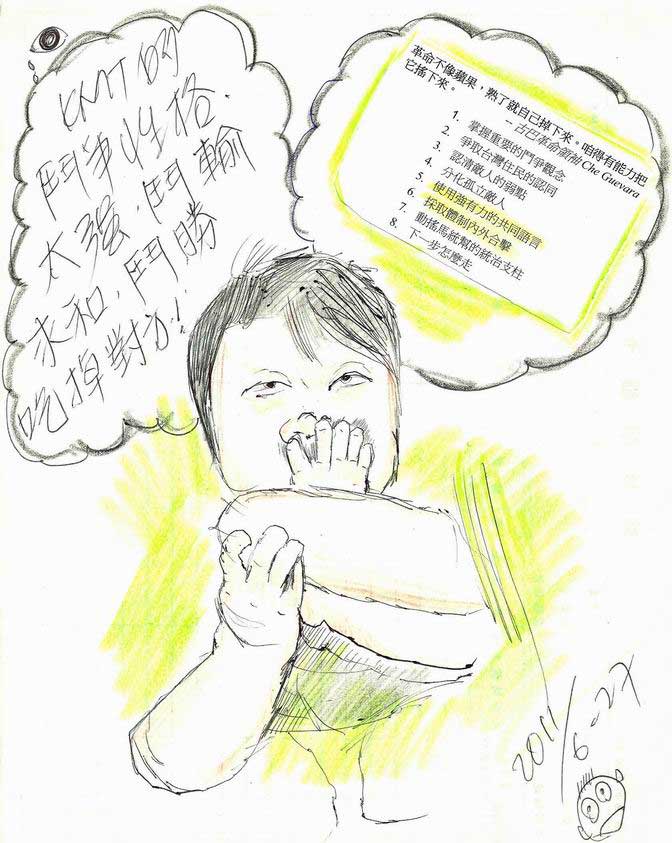 KMT的
鬥爭性格.
太強.鬥輸
求和.鬥勝
吃掉對方!
革命不像蘋果，熟了就自己掉下來。咱得有能力把
它搖下來。
- 古巴革命領袖 Che Guevara
1. 掌握重要的鬥爭觀念
2. 爭取台灣住民的認同
3. 認清敵人的弱點
4. 分化孤立敵人
5. 使用強有力的共同語言
6. 採取體制內外合擊
7. 動搖馬統幫的統治支柱
8. 下一步怎麼走
2011/6-27